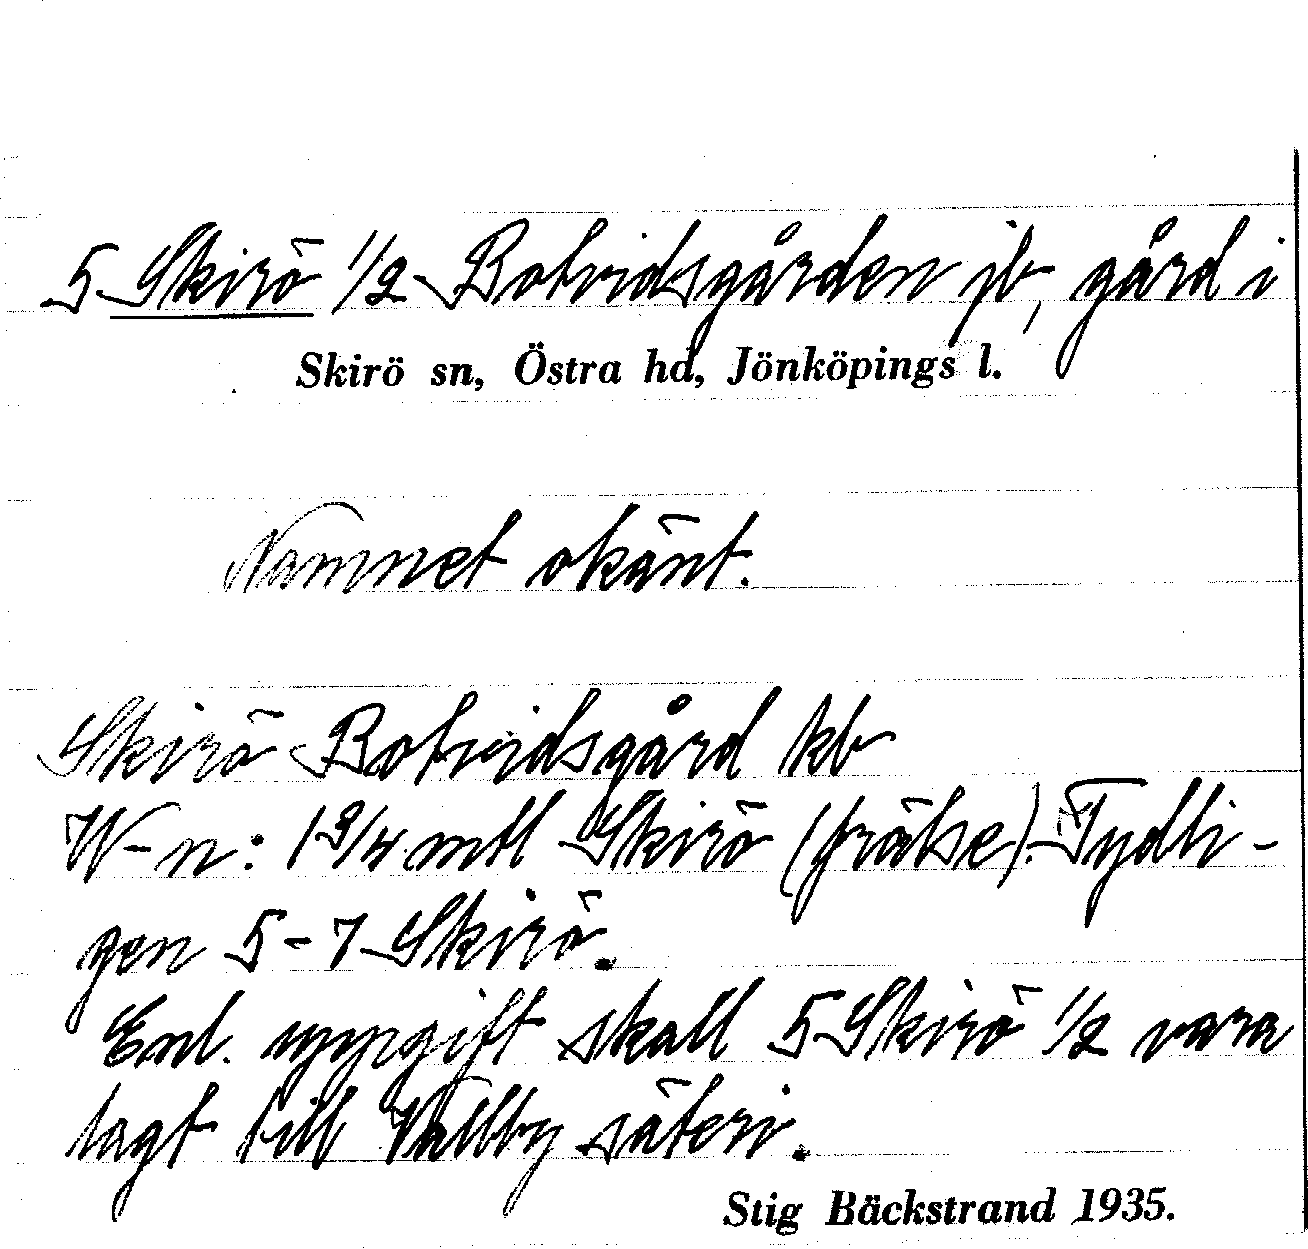 5 Skirö 1/2 Botvidsgården jb, gård i
Skirö sn, Östra hd, Jönköpings l.
Namnet okänt.
Skirö Botvidsgård kb
W-n: 1 3/4 mtl Skirö (frälse). Tydli-
gen 5-7 Skirö.
Enl. uppgift skall 5 Skirö 1/2 vara
lagt till Vallby säteri.
Stig Bäckstrand 1935.